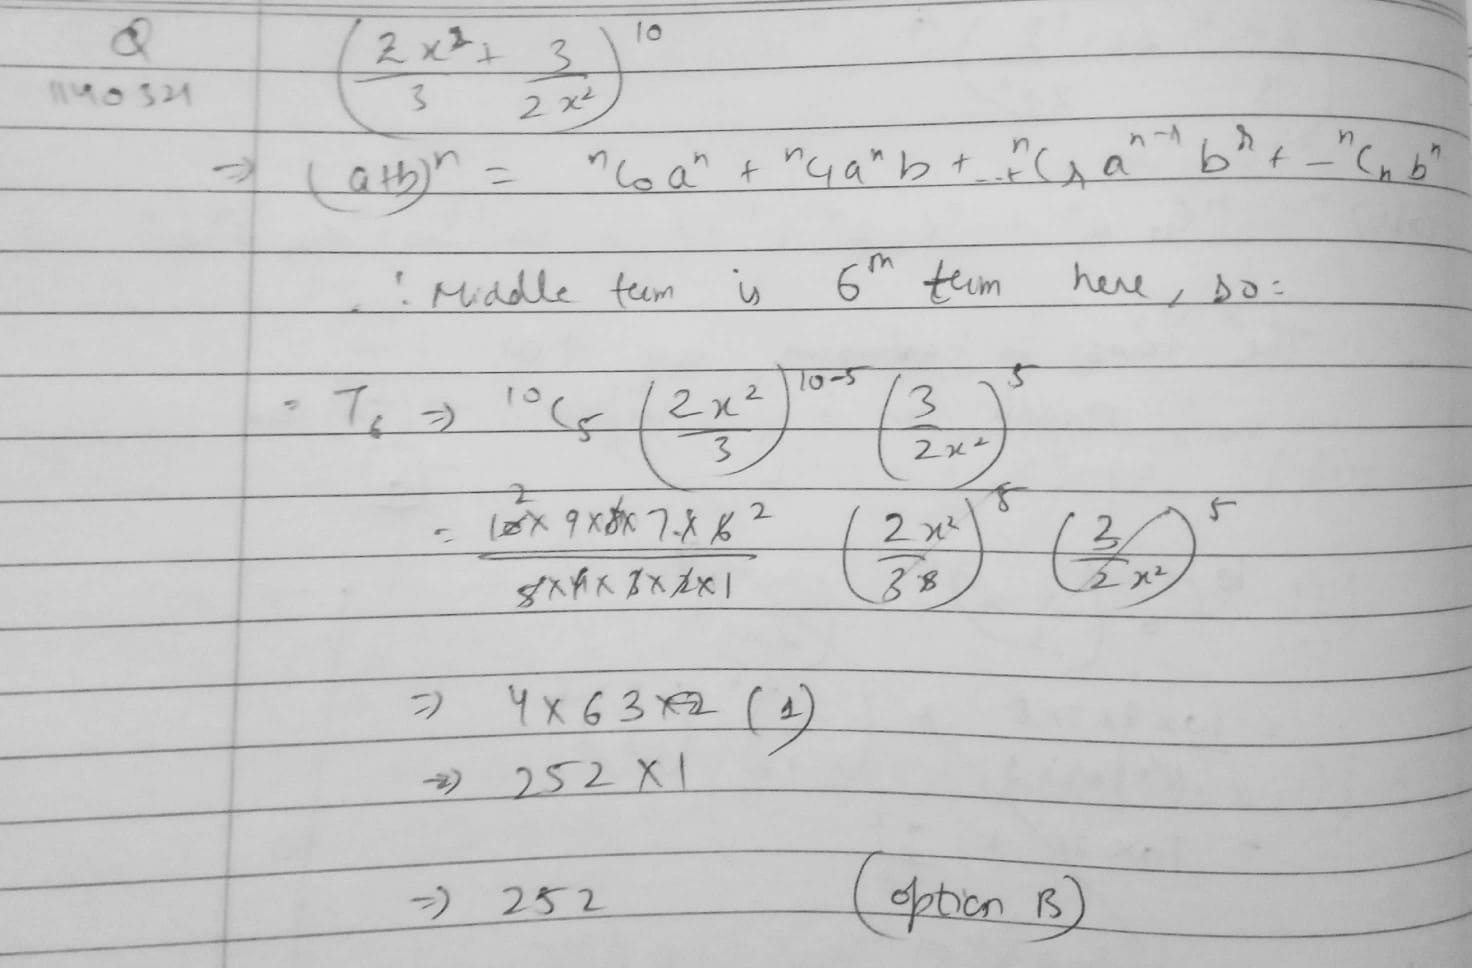 Q (2x²/3 + 3/2x²)¹⁰
1140321
⇒ (a+b)ⁿ = ⁿC₀aⁿ + ⁿC₁aⁿb + --+ ⁿCᵣ aⁿ⁻ʳ bʳ + – ⁿCₙ bⁿ
∴ Middle term is 6th term here, so:
= T₆ ⇒ ¹⁰C₅ (2x²/3)¹⁰⁻⁵ (3/2x²)⁵
= 10×9×8×7×6/5×4×3×2×1 (2x²/3)⁵ (3/2x²)⁵
⇒ 4×63 (1)
⇒ 252 × 1
⇒ 252 (option B)